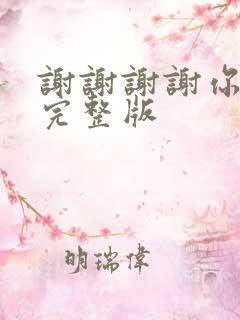 謝謝謝謝你
完整版
明瑞偉